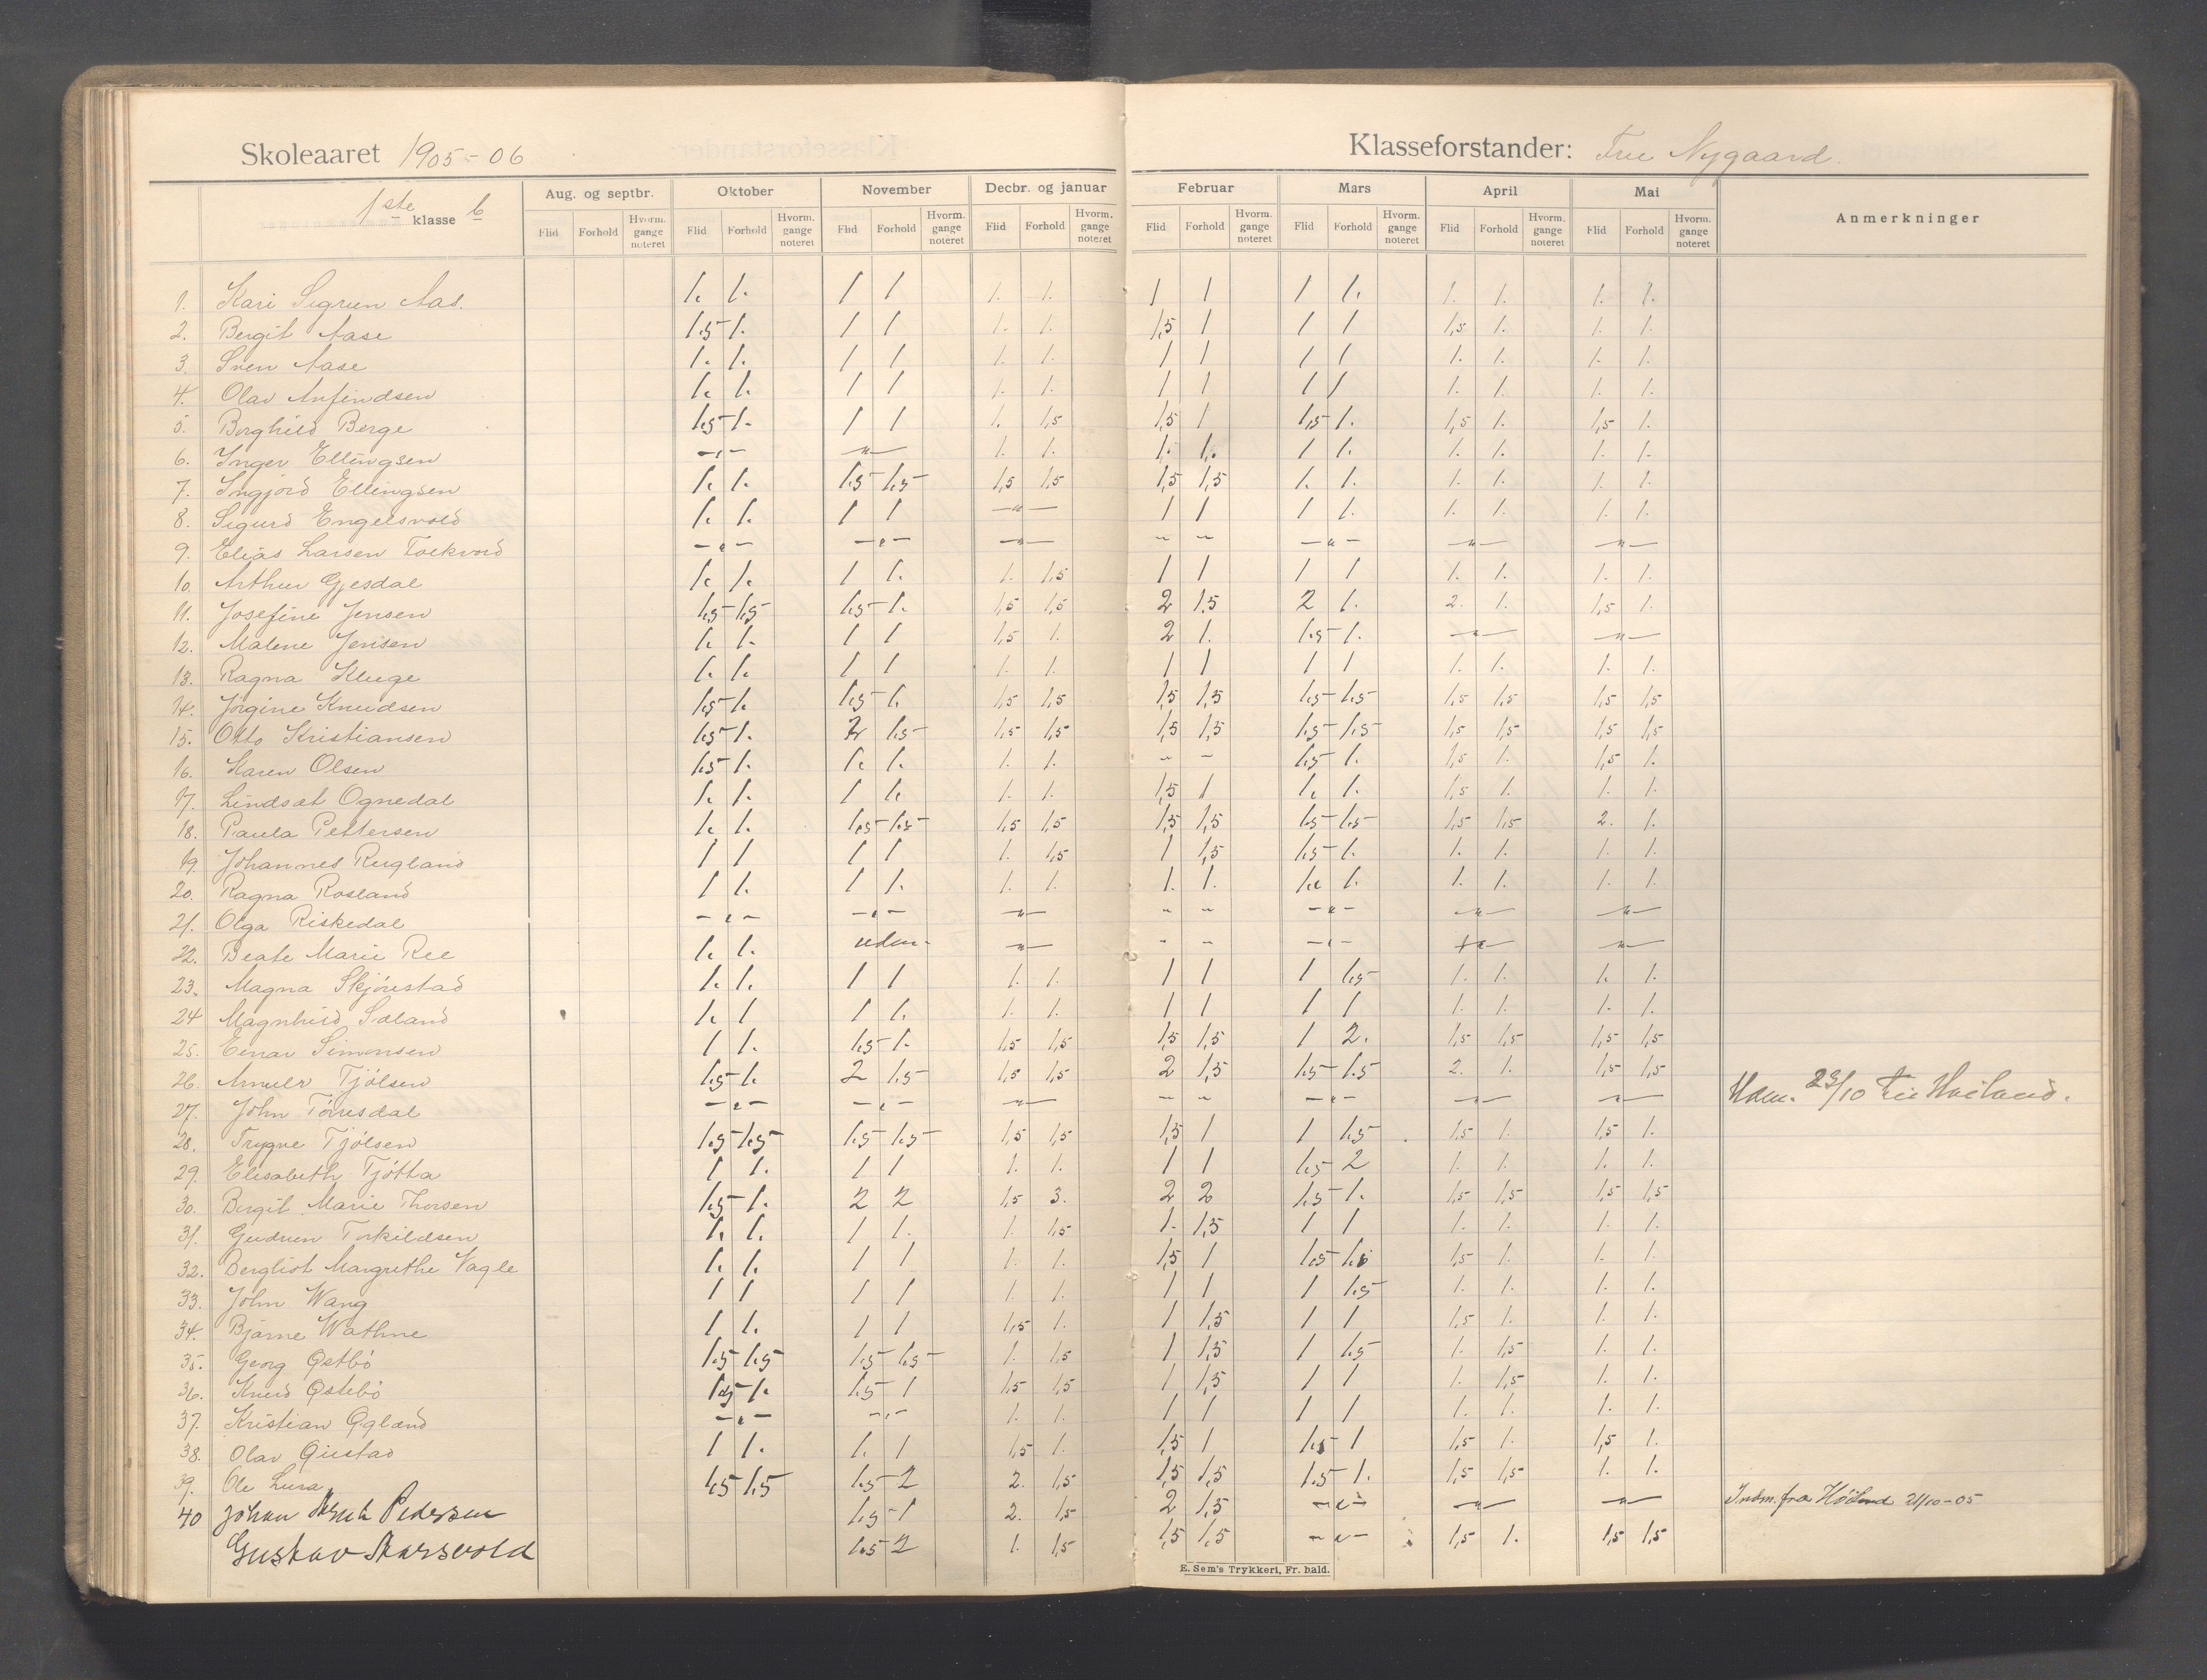 Skoleaaret 1905-06
Klasseforstander: Frue Nygaard.
1ste klasse b
Aug. og septbr. Oktober November Decbr. og januar Februar Mars April Mai Anmerkninger
Flid Forhold Hvorm. gange noteret Flid Forhold Hvorm. gange noteret Flid Forhold Hvorm. gange noteret Flid Forhold Hvorm. gange noteret Flid Forhold Hvorm. gange noteret Flid Forhold Hvorm. gange noteret Flid Forhold Hvorm. gange noteret Flid Forhold Hvorm. gange noteret
1. Kari Sigrun Aas. 1. 1. 1 1 1. 1. 1 1 1 1. 1. 1. 1. 1.
2. Bergit Aase 1.5 1. 1 1 1. 1. 1,5 1 1 1 1,5 1. 1. 1.
3. Sven Aase 1. 1. 1 1 1. 1. 1 1 1 1 1. 1. 1. 1.
4. Olav Anfindsen 1. 1. 1 1 1. 1. 1 1 1 1 1. 1. 1. 1.
5. Borghild Berge 1.5 1. 1 1 1. 1,5 1,5 1 1,5 1. 1,5 1. 1,5 1.
6. Inger Ellingsen -"- -"- 1. 1. 1. 1. 1 1. 1. 1. 1. 1.
7. Ingjord Ellingsen 1. 1. 1.5 1.5 1,5 1,5 1,5 1,5 1. 1. 1. 1. 1. 1.
8. Sigurd Engelsvold 1. 1. 1 1 -"- 1 1 1 1. 1. 1. 1. 1.
9. Elias Larsen -"- -"- -"- " " -"- -"- -"-
10. Arthur Gjesdal 1. 1. 1 1. 1. 1,5 1 1 1 1 1. 1. 1. 1.
11. Josefine Jensen 1.5 1.5 1.5 1. 1,5 1,5 2 1,5 2 1. 2. 1. 1,5 1.
12. Malene Jensen 1. 1. 1 1 1,5 1. 2 1. 1.5 1. -"- -"-
13. Ragna Kluge 1. 1. 1 1 1. 1. 1 1 1 1 1. 1. 1. 1.
14. Jörgine Knudsen 1.5 1. 1.5 1. 1,5 1,5 1,5 1,5 1.5 1.5 1,5 1,5 1,5 1,5
15. Otto Kristiansen 1.5 1. 2 1.5 1,5 1,5 1,5 1,5 1.5 1.5 1,5 1,5 1,5 1,5
16. Karen Olsen 1.5 1. 1. 1. 1. 1. " " 1.5 1. 1,5 1. 1,5 1.
17. Lindsæt Ognedal 1. 1. 1 1. 1. 1. 1,5 1 1. 1. 1,5 1. 1. 1.
18. Paula Pettersen 1. 1. 1.5 1.5 1,5 1,5 1,5 1,5 1.5 1.5 1,5 1,5 2. 1.
19. Johannes Rugland 1 1 1 1 1. 1,5 1 1,5 1.5 1. 1. 1. 1. 1.
20. Ragna Rosland 1 1. 1 1. 1. 1. 1. 1. 1. 1. 1. 1. 1. 1.
21. Olga Riskedal -"- -"- -"- " " -"- -"- -"-
22. Beate Marie Ree 1. 1. -"- " " -"- -"- -"-
23. Magna Skjörestad 1. 1. 1 1 1. 1. 1 1 1 1.5 1. 1. 1. 1.
24 Magnhild Sæland 1. 1 1 1. 1. 1. 1 1 1 1 1. 1. 1. 1.
25. Einar Simonsen 1 1. 1.5 1. 1,5 1,5 1,5 1,5 1 2. 1,5 1,5 1,5 1,5
26. Tjölsen 1.5 1. 2 1.5 1,5 1,5 2 1,5 1.5 1.5 2. 1. 1,5 1,5
27. John Törresdal -"- -"- -"- " " -"- -"- -"- 23/10
28. Trygve Tjölsen 1.5 1.5 1.5 1.5 1,5 1,5 1,5 1 1 1.5 1,5 1. 1,5 1.
29. Elisabeth Tjötta 1 1. 1 1 1. 1. 1 1 1.5 2 1. 1. 1. 1.
30. Bergit Marie Thorsen 1.5 1. 2 2 1,5 3. 2 2 1.5 1. 1,5 1,5 1,5 1,5
31. Gudrun Torkildsen 1. 1. 1 1. 1. 1,5 1. 1,5 1 1 1. 1. 1. 1.
32. Bergliot Margrethe Vagle 1. 1. 1 1 1. 1. 1,5 1 1.5 1. 1,5 1. 1. 1.
33. John Wang 1 1 1 1 1. 1. 1 1 1 1.5 1. 1. 1. 1.
34. Bjarne Wathne 1 1. 1 1 1,5 1. 1 1,5 1 1 1,5 1. 1. 1.
35. Georg Østbö 1.5 1.5 1.5 1.5 1. 1,5 1 1,5 1 1.5 1. 1,5 1. 1.
36. Knud Østebö 1.5 1. 1.5 1 1,5 1,5 1 1,5 1 1 1. 1,5 1. 1.
37. Kristian Øgland -"- -"- 1. 1. 1 1 1 1 1. 1. 1. 1.
38. Olav 1 1. 1. 1 1,5 1. 1,5 1 1.5 1 1,5 1. 1,5 1.
39. Ole Lura 1.5 1.5 1.5 2 2. 1,5 1,5 1,5 1.5 1. 1,5 1,5 1. 1.
40 Johan Pedersen 1.5 1 2. 1,5 2 1,5 -"- -"- -"- Indm. fra Höiland 21/10-05
Gustav 1.5 2 1. 1,5 1,5 1,5 -"- 1,5 1. 1,5 1,5
E. Sem's Trykkeri, Fr.hald.